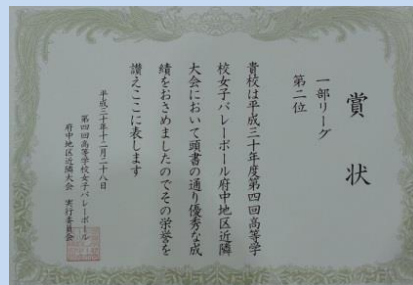 賞状
一部リーグ
第二位
貴校は平成三十年度第四回高等学
校女子バレーボール府中地区近隣
大会において頭書の通り優秀な成
績をおさめましたのでその栄誉を
讃えここに表します
平成三十年十二月二十八日
第四回高等学校女子バレーボール
府中地区近隣大会 実行委員会